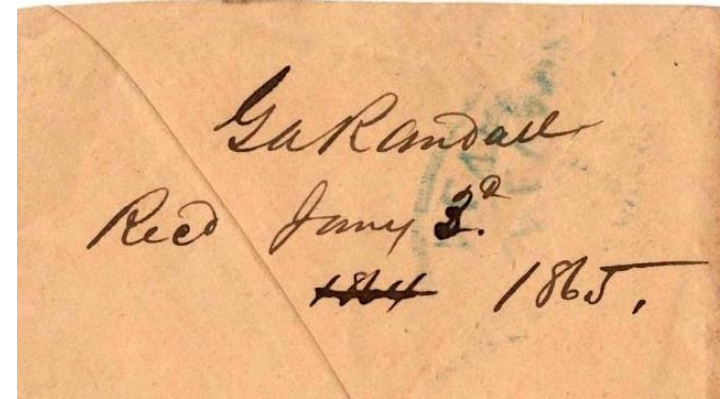 Ga Randall
Recd Jany 3.d
1864 1865.